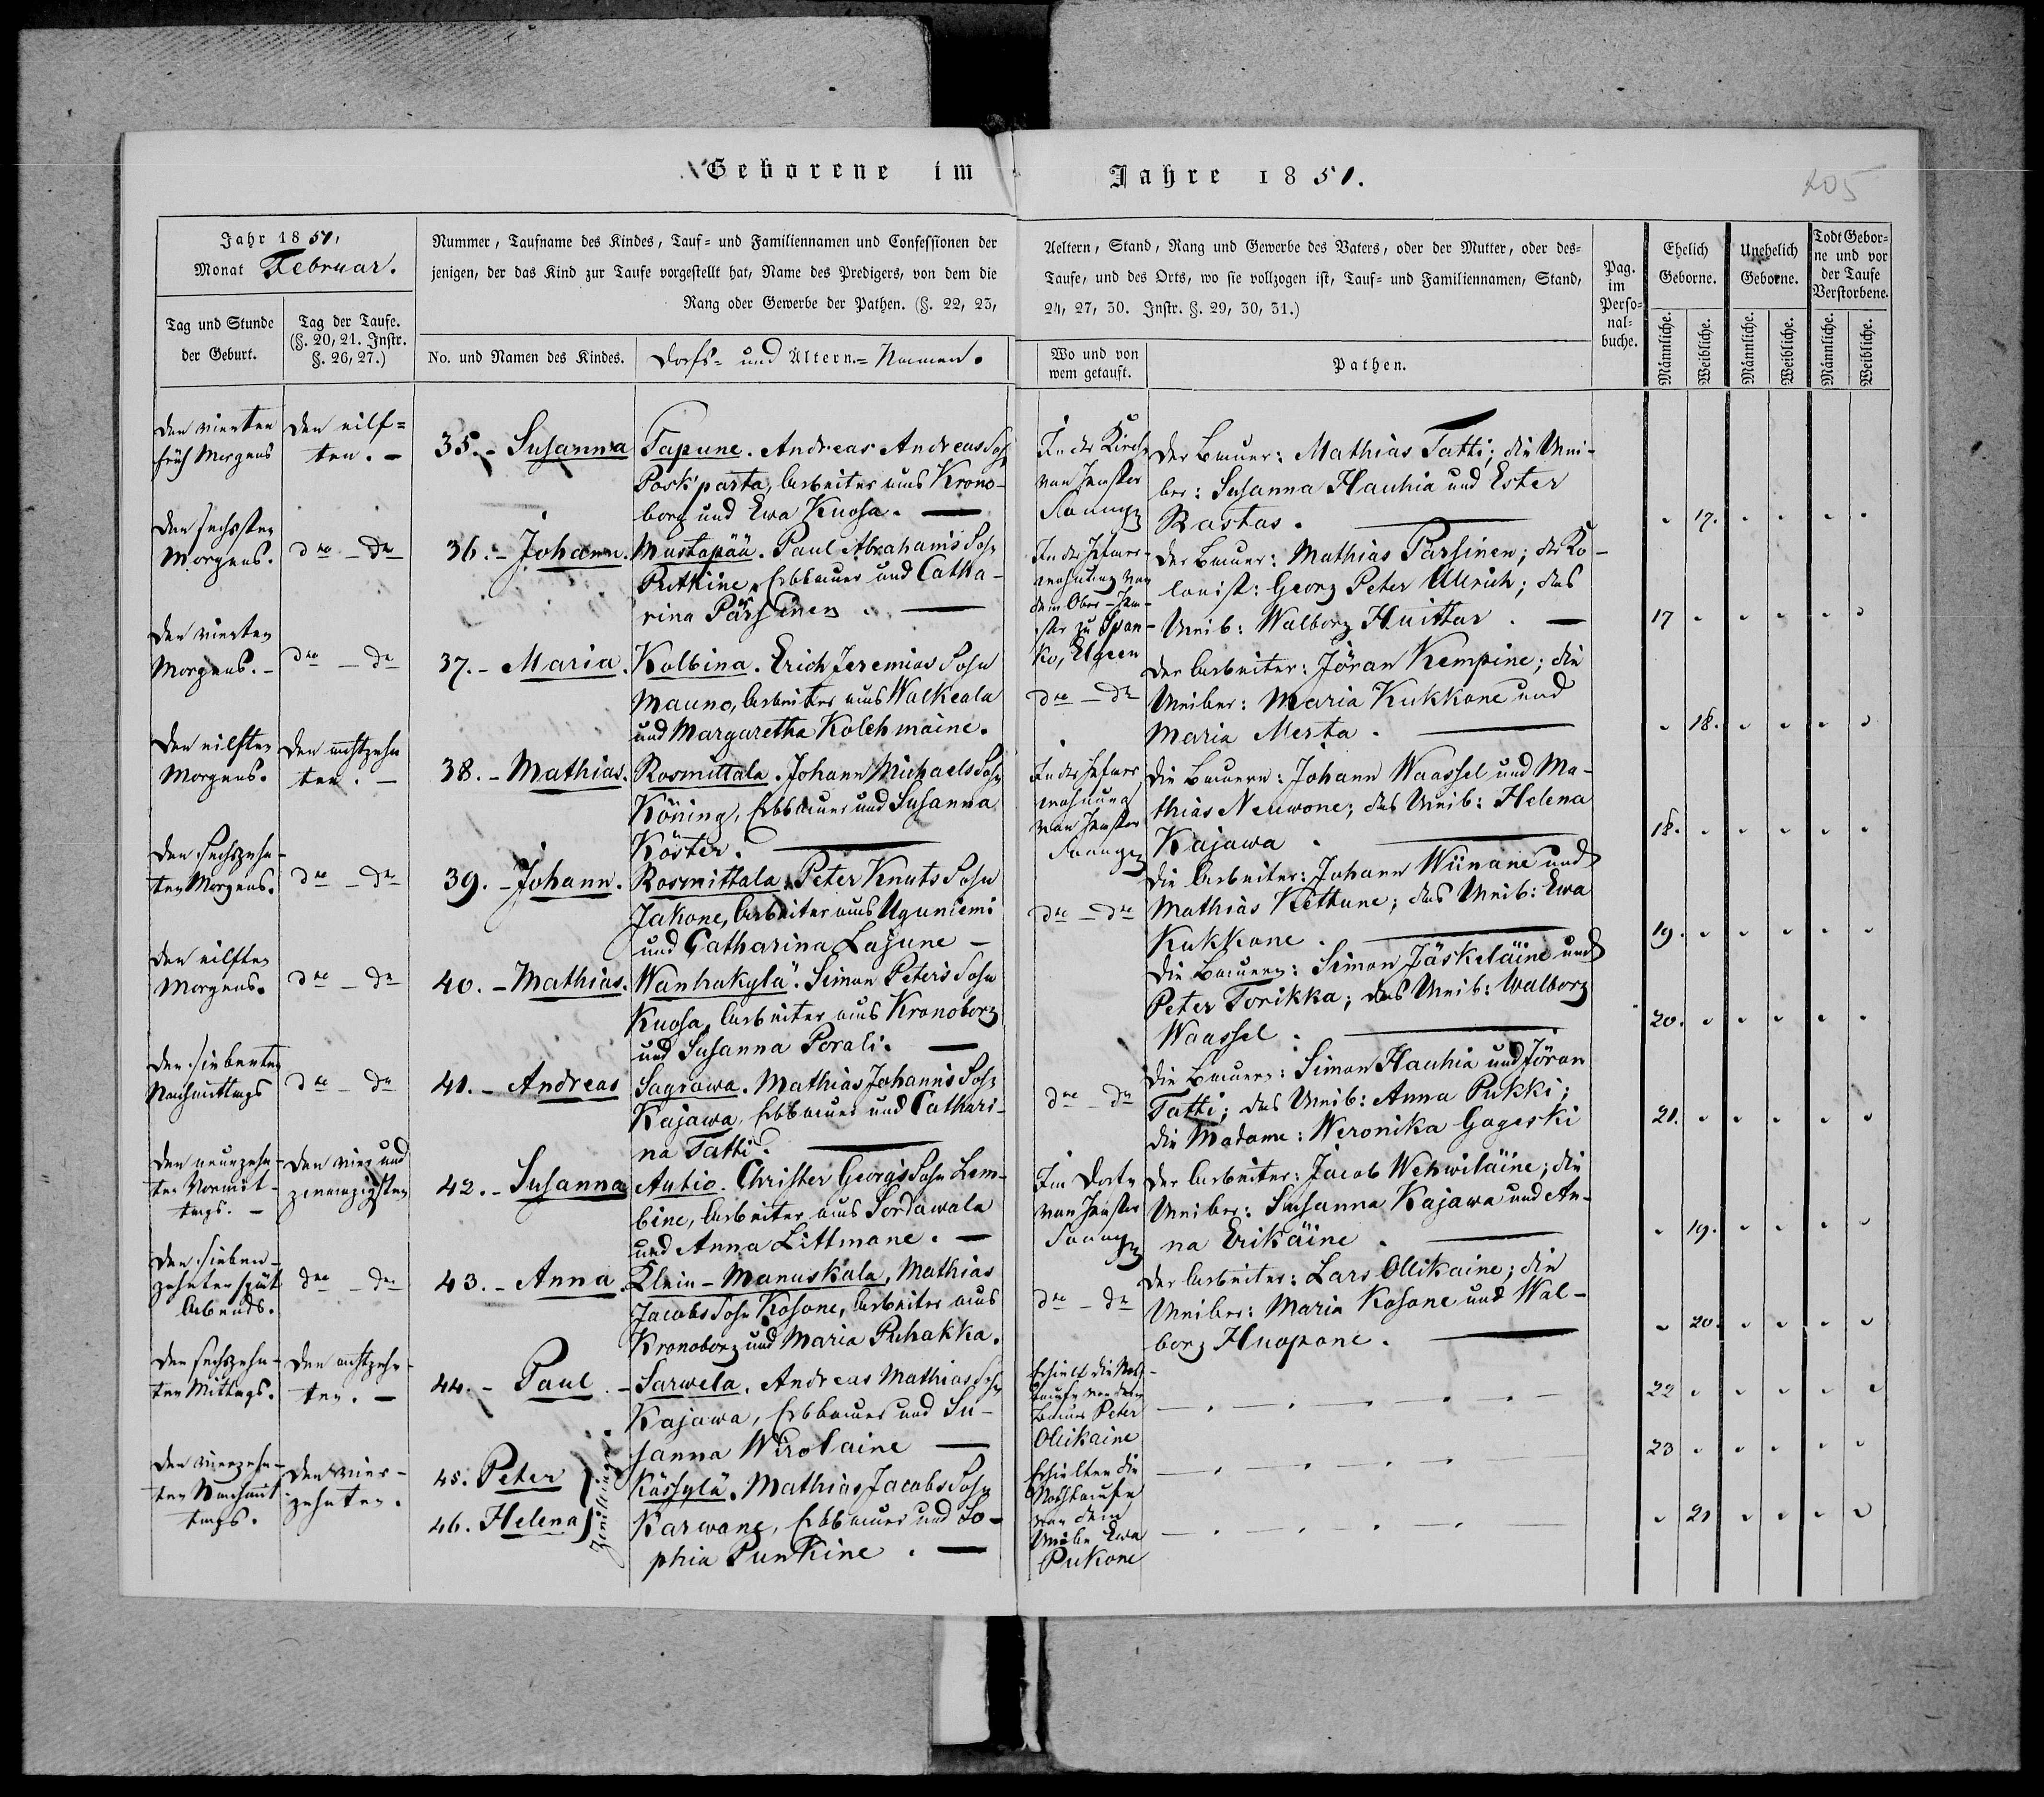 Geborene im Jahre 1851.
205
Jahr 1851,
Monat Februar.
Nummer, Taufname des Kindes, Tauf= und Familiennamen und Confessionen der
jenigen, der das Kind zur Taufe vorgestellt hat, Name des Predigers, von dem die
Rang oder Gewerbe der Pathen. (§. 22, 23,
Aeltern, Stand, Rang und Gewerbe des Vaters, oder der Mutter, oder des=
Taufe, und des Orts, wo sie vollzogen ist, Tauf= und Familiennamen, Stand,
24, 27, 30. Instr. §. 29, 30, 31.)
Pag.
im
Perso=
nal=
buche.
Ehelich
Geborne.
Unehelich
Geborne.
Todt Gebor=
ne und vor
der Taufe
Verstorbene.
Tag und Stunde
der Geburt.
Tag der Taufe.
(§. 20, 21. Instr.
§. 26, 27.)
No. und Namen des Kindes.
Dorfs- und Ältern-Namen.
Wo und von
wem getauft.
Pathen.
Männliche.
Weibliche.
Männliche.
Weibliche.
Männliche.
Weibliche.
Den vierten
früh Morgens
Den eilf=
ten. -
35. - Susanna
Tapune. Andreas Andreas Sohn
Poskparta, Arbeiter aus Krono-
borg und Ewa Kuosa. -
In der Kirche
von Pastor
Der Bauer: Mathias Tatti; die Wei-
ber: Susanna Hauhia und Ester
Rastas.
17.
Den sechsten
Morgens.
dto - dto
36. - Johann.
Mustapää. Paul Abrahams Sohn
Putkine, Erbbauer und Catha-
rina Pärsinen. -
In der Pastors-
wohnung von
dem Ober-Pas-
tor zu Span-
ko, Elgren
Der Bauer: Mathias Parsinen; der Ko-
lonist: Georg Peter Ullrich; das
Weib: Walborg Huittar. -
17
Den vierten
Morgens. -
dto - dto
37. - Maria.
Kolbina. Erich Jeremias Sohn
Mauno, Arbeiter aus Walkeala
und Margaretha Kolehmaine.
dto - dto
Der Arbeiter: Jöran Kempine; die
Weiber: Maria Kukkone und
Maria Mesta.
18.
Den eilften
Morgens.
Den achtzehn
ten. -
38. - Mathias.
Rosmittala. Johann Michaels Sohn
Köning, Erbbauer und Susanna
Köster.
In der Pastors
wohnung
von Pastor
Die Bauern: Johann Waassel und Ma-
thias Neuwone; das Weib: Helena
Kajawa.
18.
Den sechszehn-
ten Morgens.
dto - dto
39. - Johann.
Rosmittala. Peter Knuts Sohn
Jakone, Arbeiter aus Uguniemi
und Catharina Lajune -
dto - dto
Die Arbeiter: Johann Wiinane und
Mathias Kettune; das Weib: Ewa
Kukkone.
19.
Den eilften
Morgens.
dto - dto
40. - Mathias.
Wanhakylä. Simon Peters Sohn
Kuosa, Arbeiter aus Kronoborg
und Susanna Porali. -
Die Bauern: Simon Jäskeläine und
Peter Torikka; das Weib: Walborg
Waassel.
20.
Den siebenten
Nachmittags
dto - dto
41. - Andreas
Sagrowa. Mathias Johanns Sohn
Kajawa, Erbbauer und Cathari-
na Tatti.
dto - dto
Die Bauern: Simon Hauhia und Jöran
Tatti; das Weib: Anna Pukki;
die Madame: Weronika Gageski
21.
Den neunzehn-
ten Vormit-
tags. -
Den vier und
zwanzigsten
42. - Susanna
Autio. Christer Georgs Sohn Lem-
bine, Arbeiter aus Sordawala
und Anna Littmane. -
Im Dorfe
von Pastor
Der Arbeiter: Jacob Wehwiläine; die
Weiber: Susanna Kajawa und An-
na Erikäine.
19.
Den sieben-
zehnten spät
Abends.
dto - dto
43. - Anna.
Klein-Manuskala, Mathias
Jacobs Sohn Kosone, Arbeiter aus
Kronoborg und Maria Puhakka.
dto - dto
Der Arbeiter: Lars Ollikaine; die
Weiber: Maria Kosone und Wal-
borg Huopone.
20.
Den sechszehn-
ten Mittags.
Den achtzehn-
ten. -
44. - Paul. -
Sarwela. Andreas Mathias Sohn
Kajawa, Erbbauer und Su-
sanna Wirolaine -
Erhielt die Noth-
taufe von dem
Bauer Peter
Ollikaine
22
Den vierzehn-
ten Nachmit
tags.
Den vier-
zehnten.
45. Peter
46. Helena
Zwillinge.
Kässylä. Mathias Jacobs Sohn
Karwane, Erbbauer und So-
phia Punkine. -
Erhielten die
Nothtaufe
von dem
Weibe Ewa
Pukone
23
21